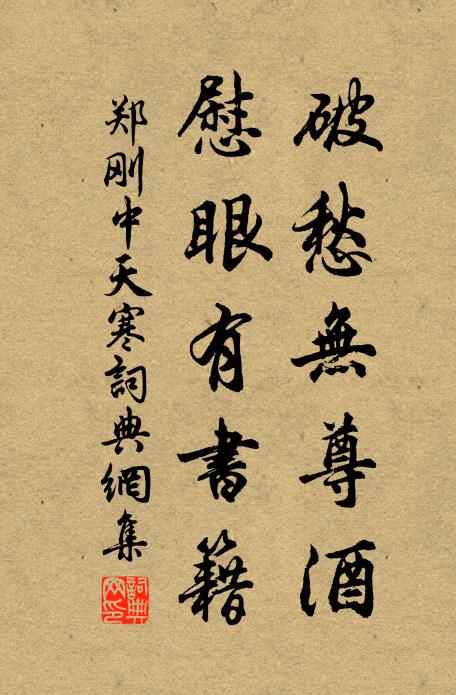 破愁無尊酒
慰眼有書籍
郑刚中天寒詞典網集
詞典網印